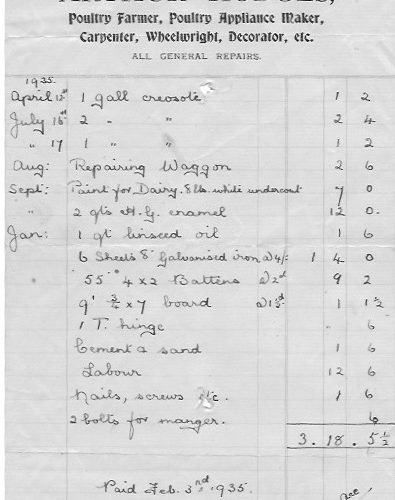 Poultry Farmer, Poultry Appliance Maker,
Carpenter, Wheelwright, Decorator, etc.
ALL GENERAL REPAIRS.
1935.
April 12th 1 gall creosote 1 2
July 16th 2 " " 2 4
" 17 1 " " 1 2
Aug: Repairing Waggon 2 6
Sept: Paint for Dairy. 8 lbs. white undercoat 7 0
" 2 qts H.G. enamel 12 0.
Jan: 1 qt linseed oil 1 6
6 Sheets 8' Galvanised iron @ 4/- 1 4 0
55' 4 x 2 Battens @ 2d 9 2
9' 3/4 x 7 board @ 1½d 1 1½
1 T. hinge 6
Cement & sand 1 6
Labour 12 6
Nails, screws etc. 1 6
2 bolts for manger. 6
3. 18. 5½
Paid Feb. 3rd 1935.